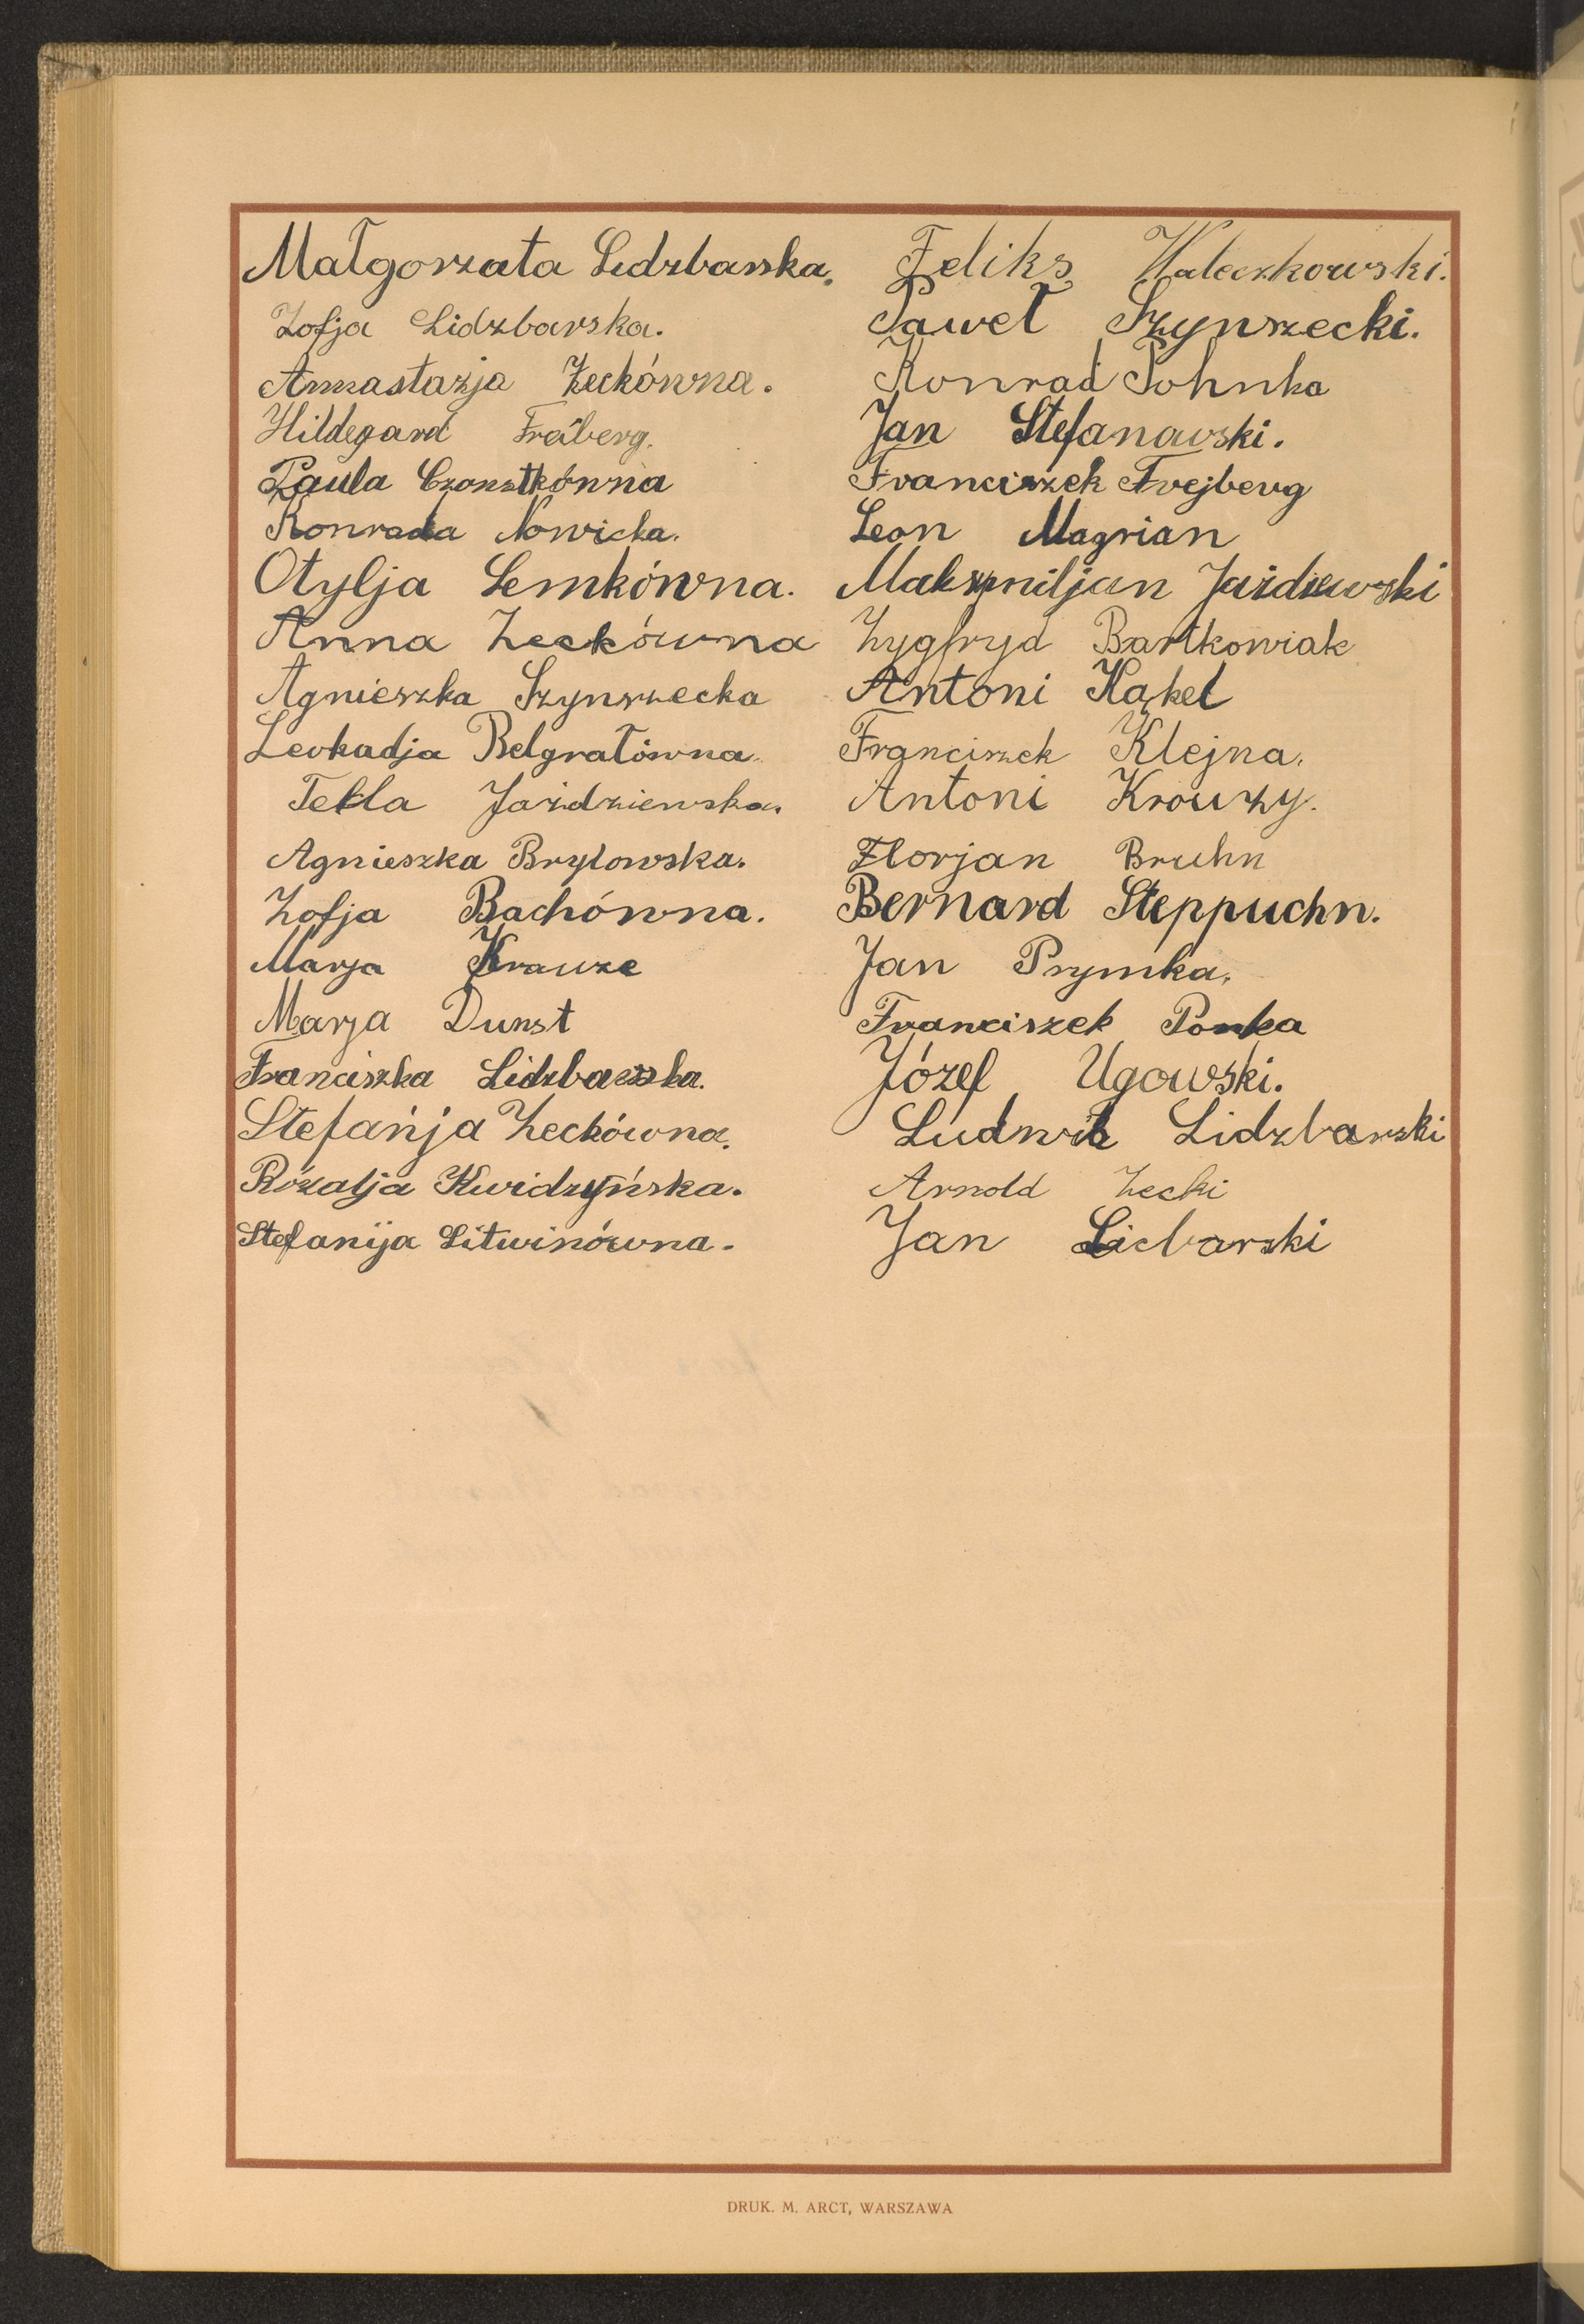 Małgorzata Lidzbarska.
Zofja Lidzbarska.
Annastazja Zeckówna.
Hildegard Freiberg.
Paula Czonstkówna
Konrada Nowicka.
Otylja Lemkówna.
Anna Zeckówna
Agnieszka Szynszecka
Leokadja Belgrałówna.
Tekla Jażdziewska.
Agnieszka Bryłowska.
Zofja Bachówna.
Marja Krauze
Marja Dunst
Franciszka Lidzbarska.
Stefanja Zeckówna.
Rozalja Kwidzyńska.
Stefanija Litwinówna.
Feliks Waleczkowski.
Paweł Szynszecki.
Konrad Sohnka
Jan Stefanowski.
Franciszek Frejberg
Leon Magrian
Maksymiljan Jażdzewski
Zygfryd Bartkowiak
Antoni Kąkel
Franciszek Klejna.
Antoni Krouzy.
Florjan Bruhn
Bernard Steppuchn.
Jan Prymka.
Franciszek Ponka
Józef Ugowski.
Ludwik Lidzbarski
Arnold Zecki
Jan Licbarski
DRUK. M. ARCT, WARSZAWA